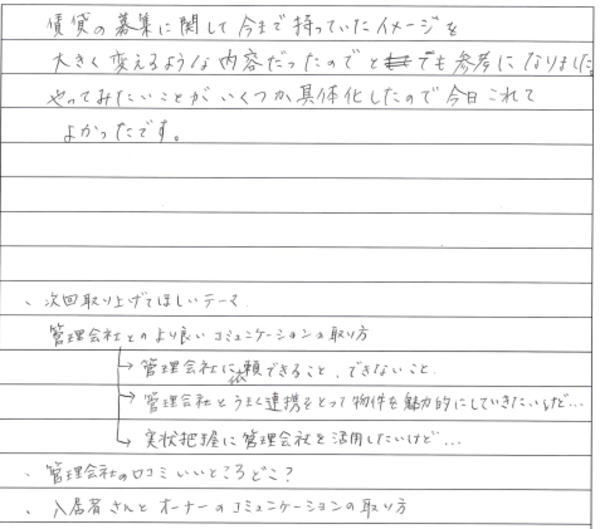 賃貸の募集に関して今まで持っていたイメージを
大きく変えるような内容だったのでとても参考になりました。
やってみたいことがいくつか具体化したので今日これて
よかったです。
、次回取り上げてほしいテーマ
管理会社とのより良いコミュニケーションの取り方
→管理会社に依頼できること、できないこと
→管理会社とうまく連携をとって物件を魅力的にしていきたいけど…
→実状把握に管理会社を活用したいけど…
、管理会社の口コミいいところどこ?
、入居者さんとオーナーのコミュニケーションの取り方